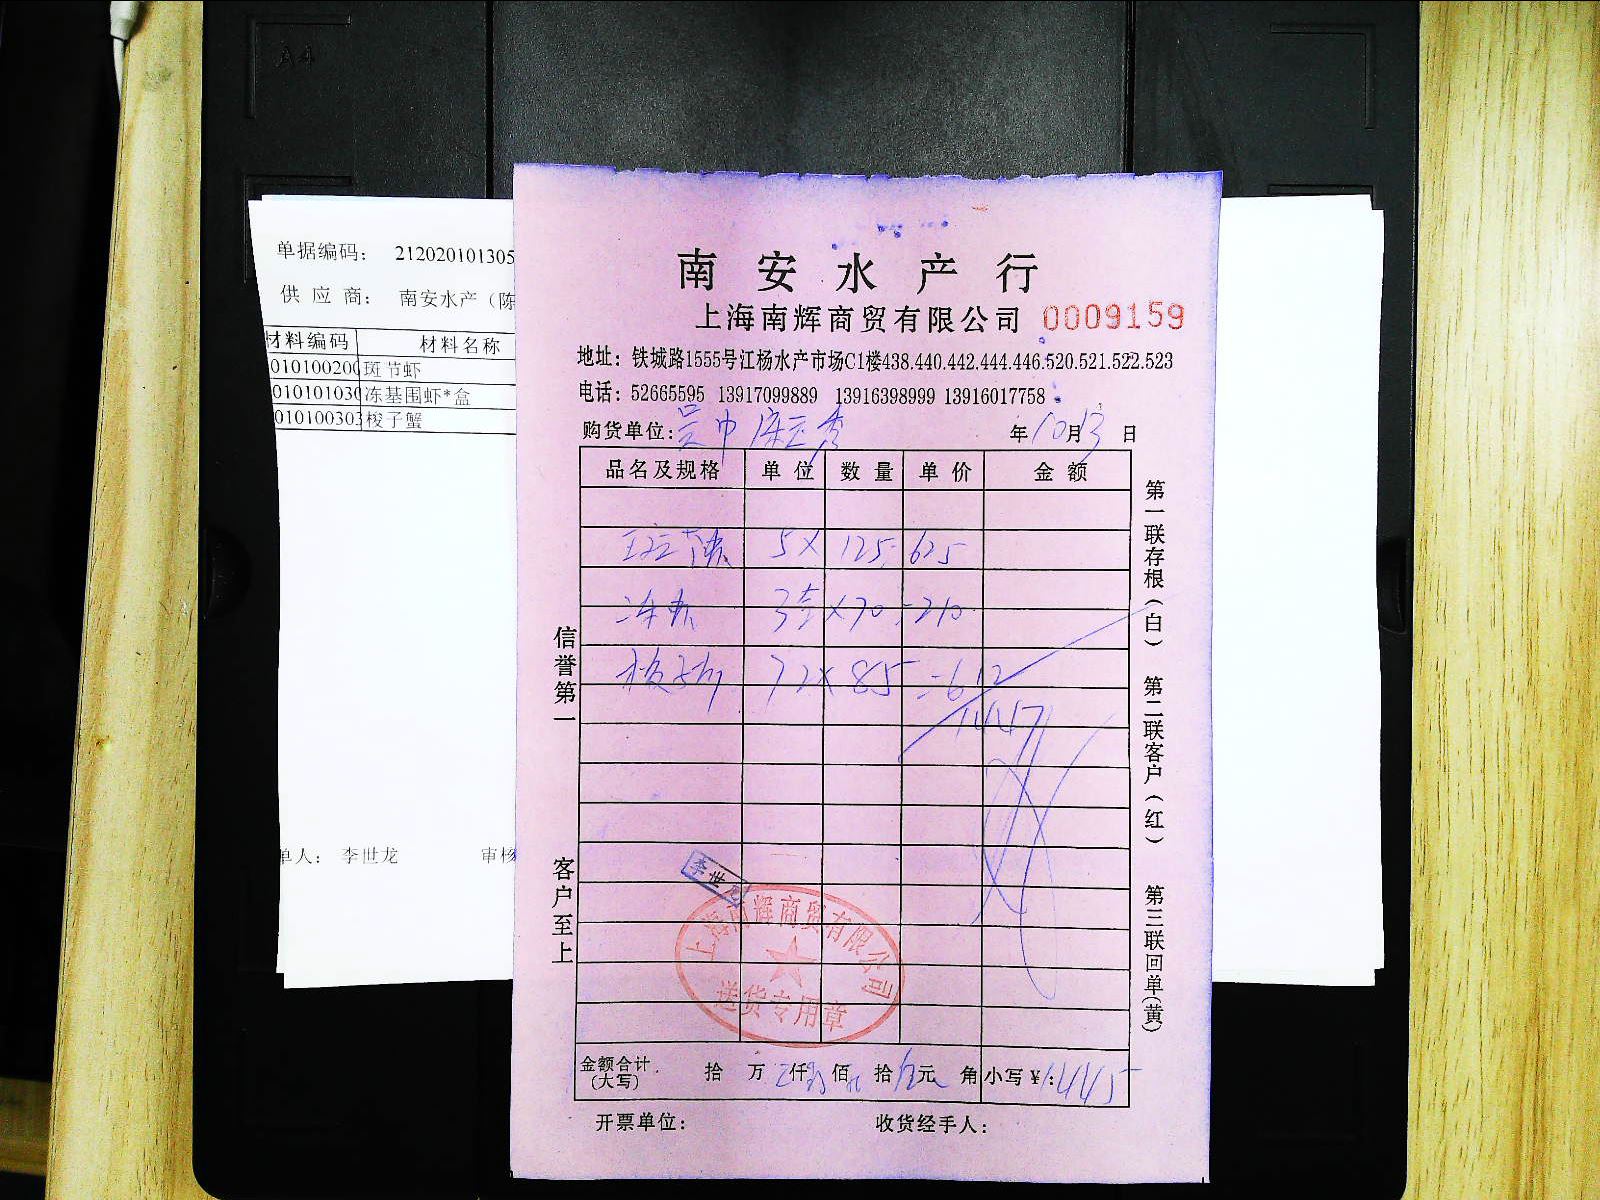 A4
单据编码： 212020101305
供 应 商： 南安水产（陈
材料编码 材料名称
010100200 斑节虾
010101030 冻基围虾*盒
010100303 梭子蟹
单人： 李世龙 审核
南安水产行
上海南辉商贸有限公司 0009159
地址：铁城路1555号江杨水产市场C1楼438.440.442.444.446.520.521.522.523
电话：52665595 13917099889 13916398999 13916017758
购货单位： 年10月13日
品名及规格 单位 数量 单价 金额
斑节虾 5 × 125 = 625
冻虾 3盒 × 70 = 210
梭子蟹 72 × 85 = 612
1447
信誉第一
客户至上
第一联存根（白） 第二联客户（红） 第三联回单（黄）
李世龙
上海南辉商贸有限公司
送货专用章
金额合计（大写） 拾 万 仟 佰 拾 元 角 小写￥：1445
开票单位： 收货经手人：